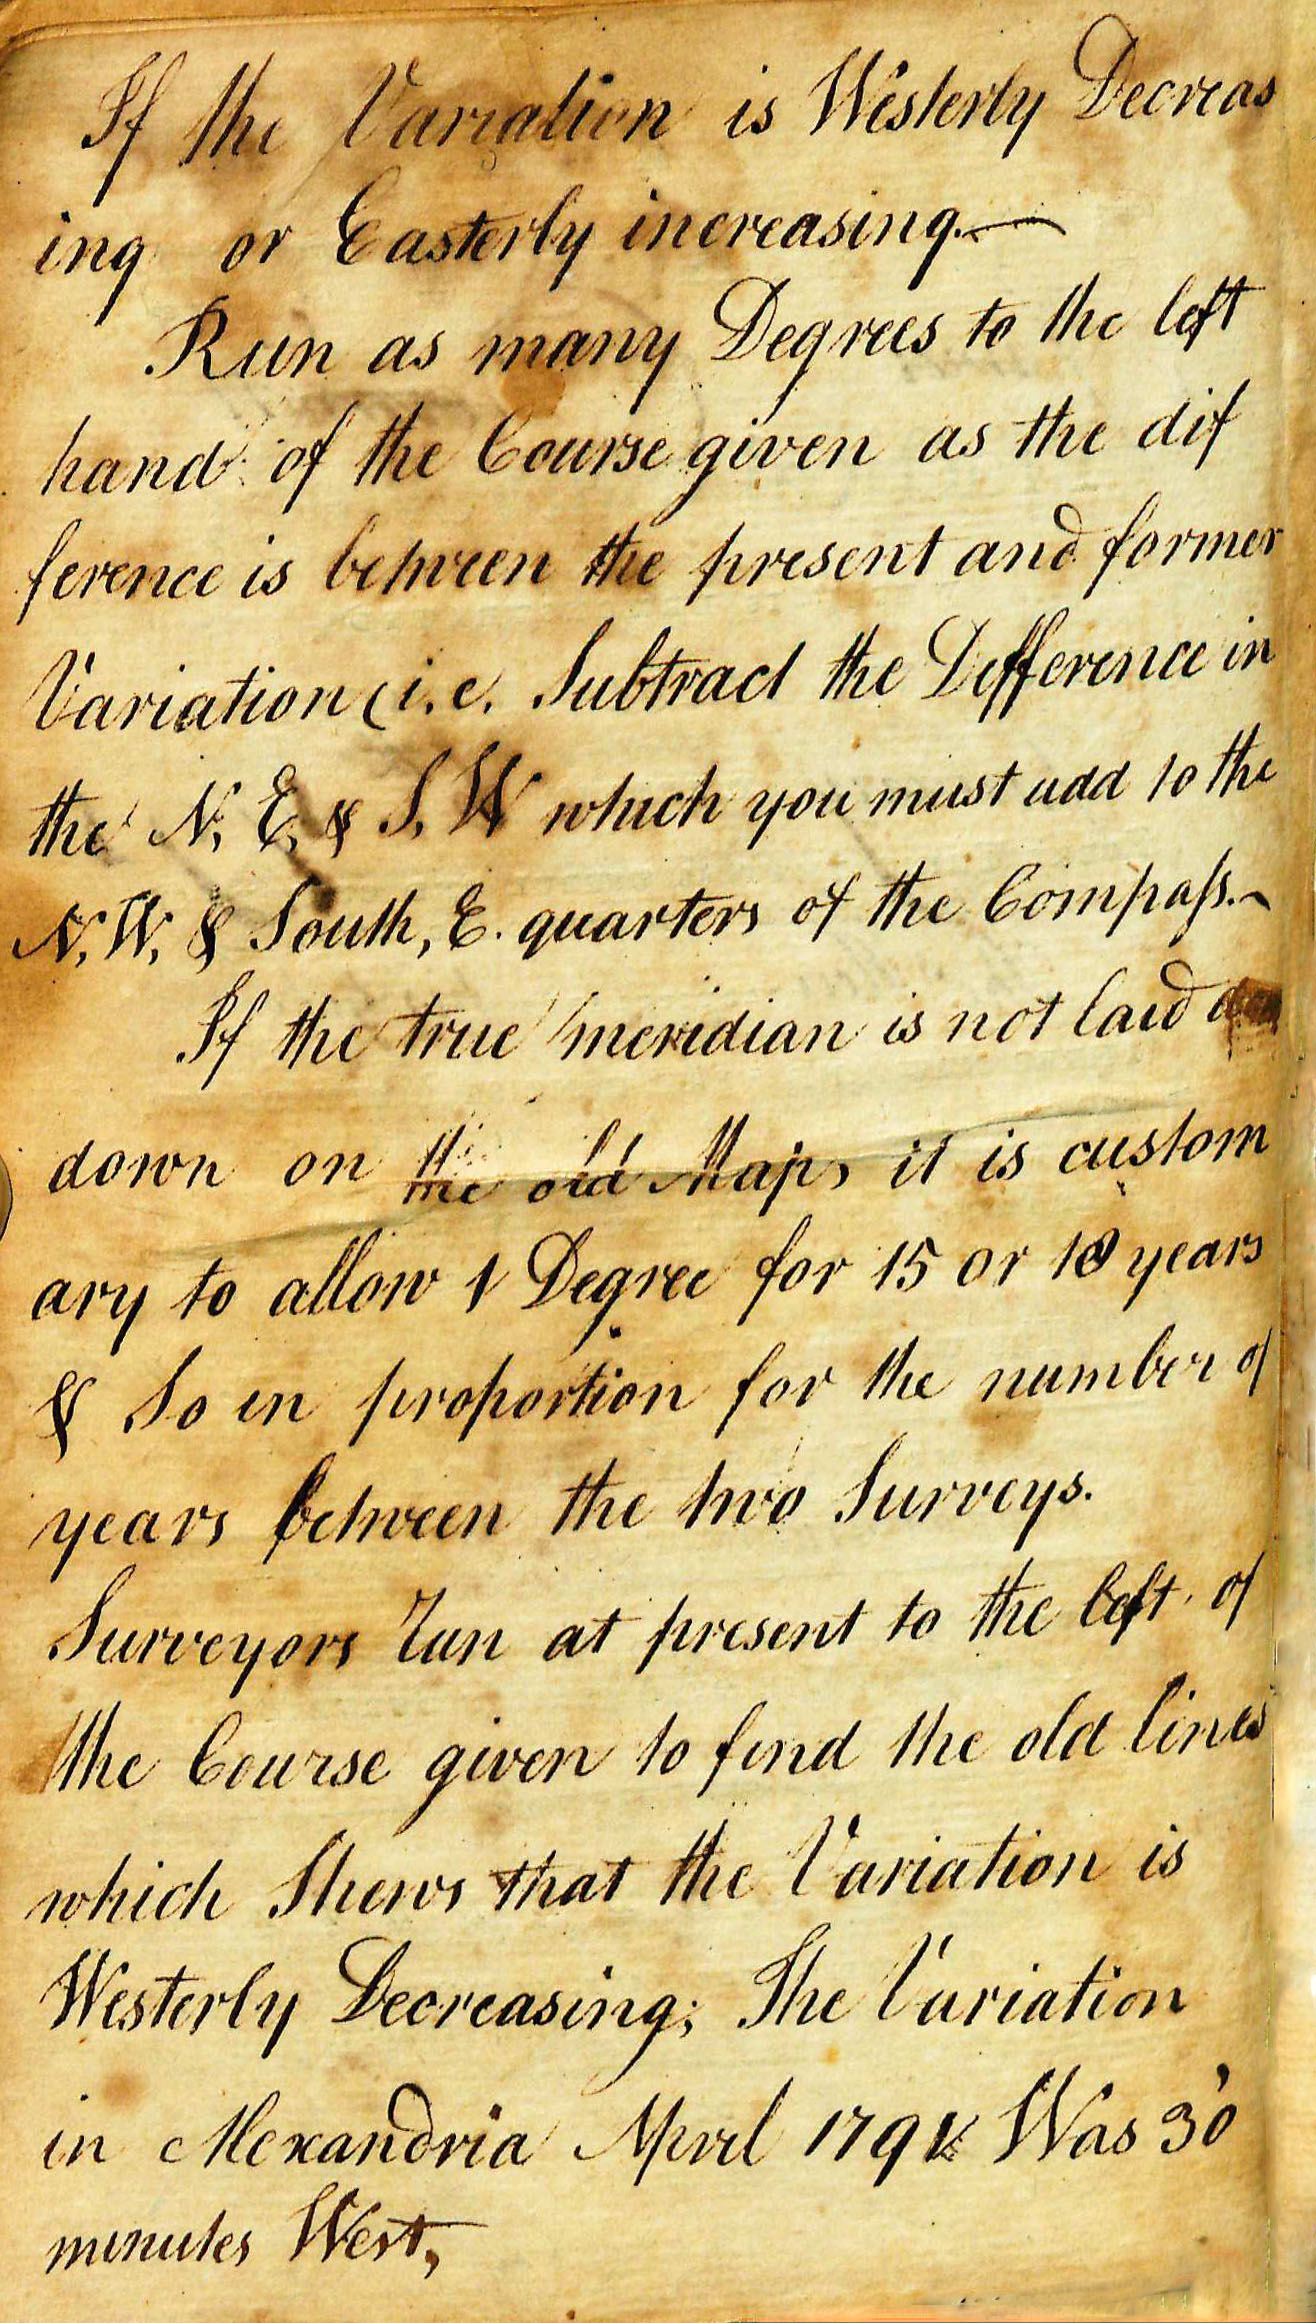 If the Variation is Westerly Decreas
ing or Easterly increasing.—
Run as many Degrees to the left
hand of the Course given as the dif
ference is between the present and former
Variation (i.e. Subtract the Difference in
the N. E. & S. W which you must add to the
N. W. & South, E. quarters of the Compaſs.~
If the true meridian is not laid
down on the old Maps it is custom
ary to allow 1 Degree for 15 or 18 years
& So in proportion for the number of
years between the two Surveys.
Surveyors Run at present to the left of
the Course given to find the old lines
which Shews that the Variation is
Westerly Decreasing; The Variation
in Alexandria April Was 30'
minutes West,